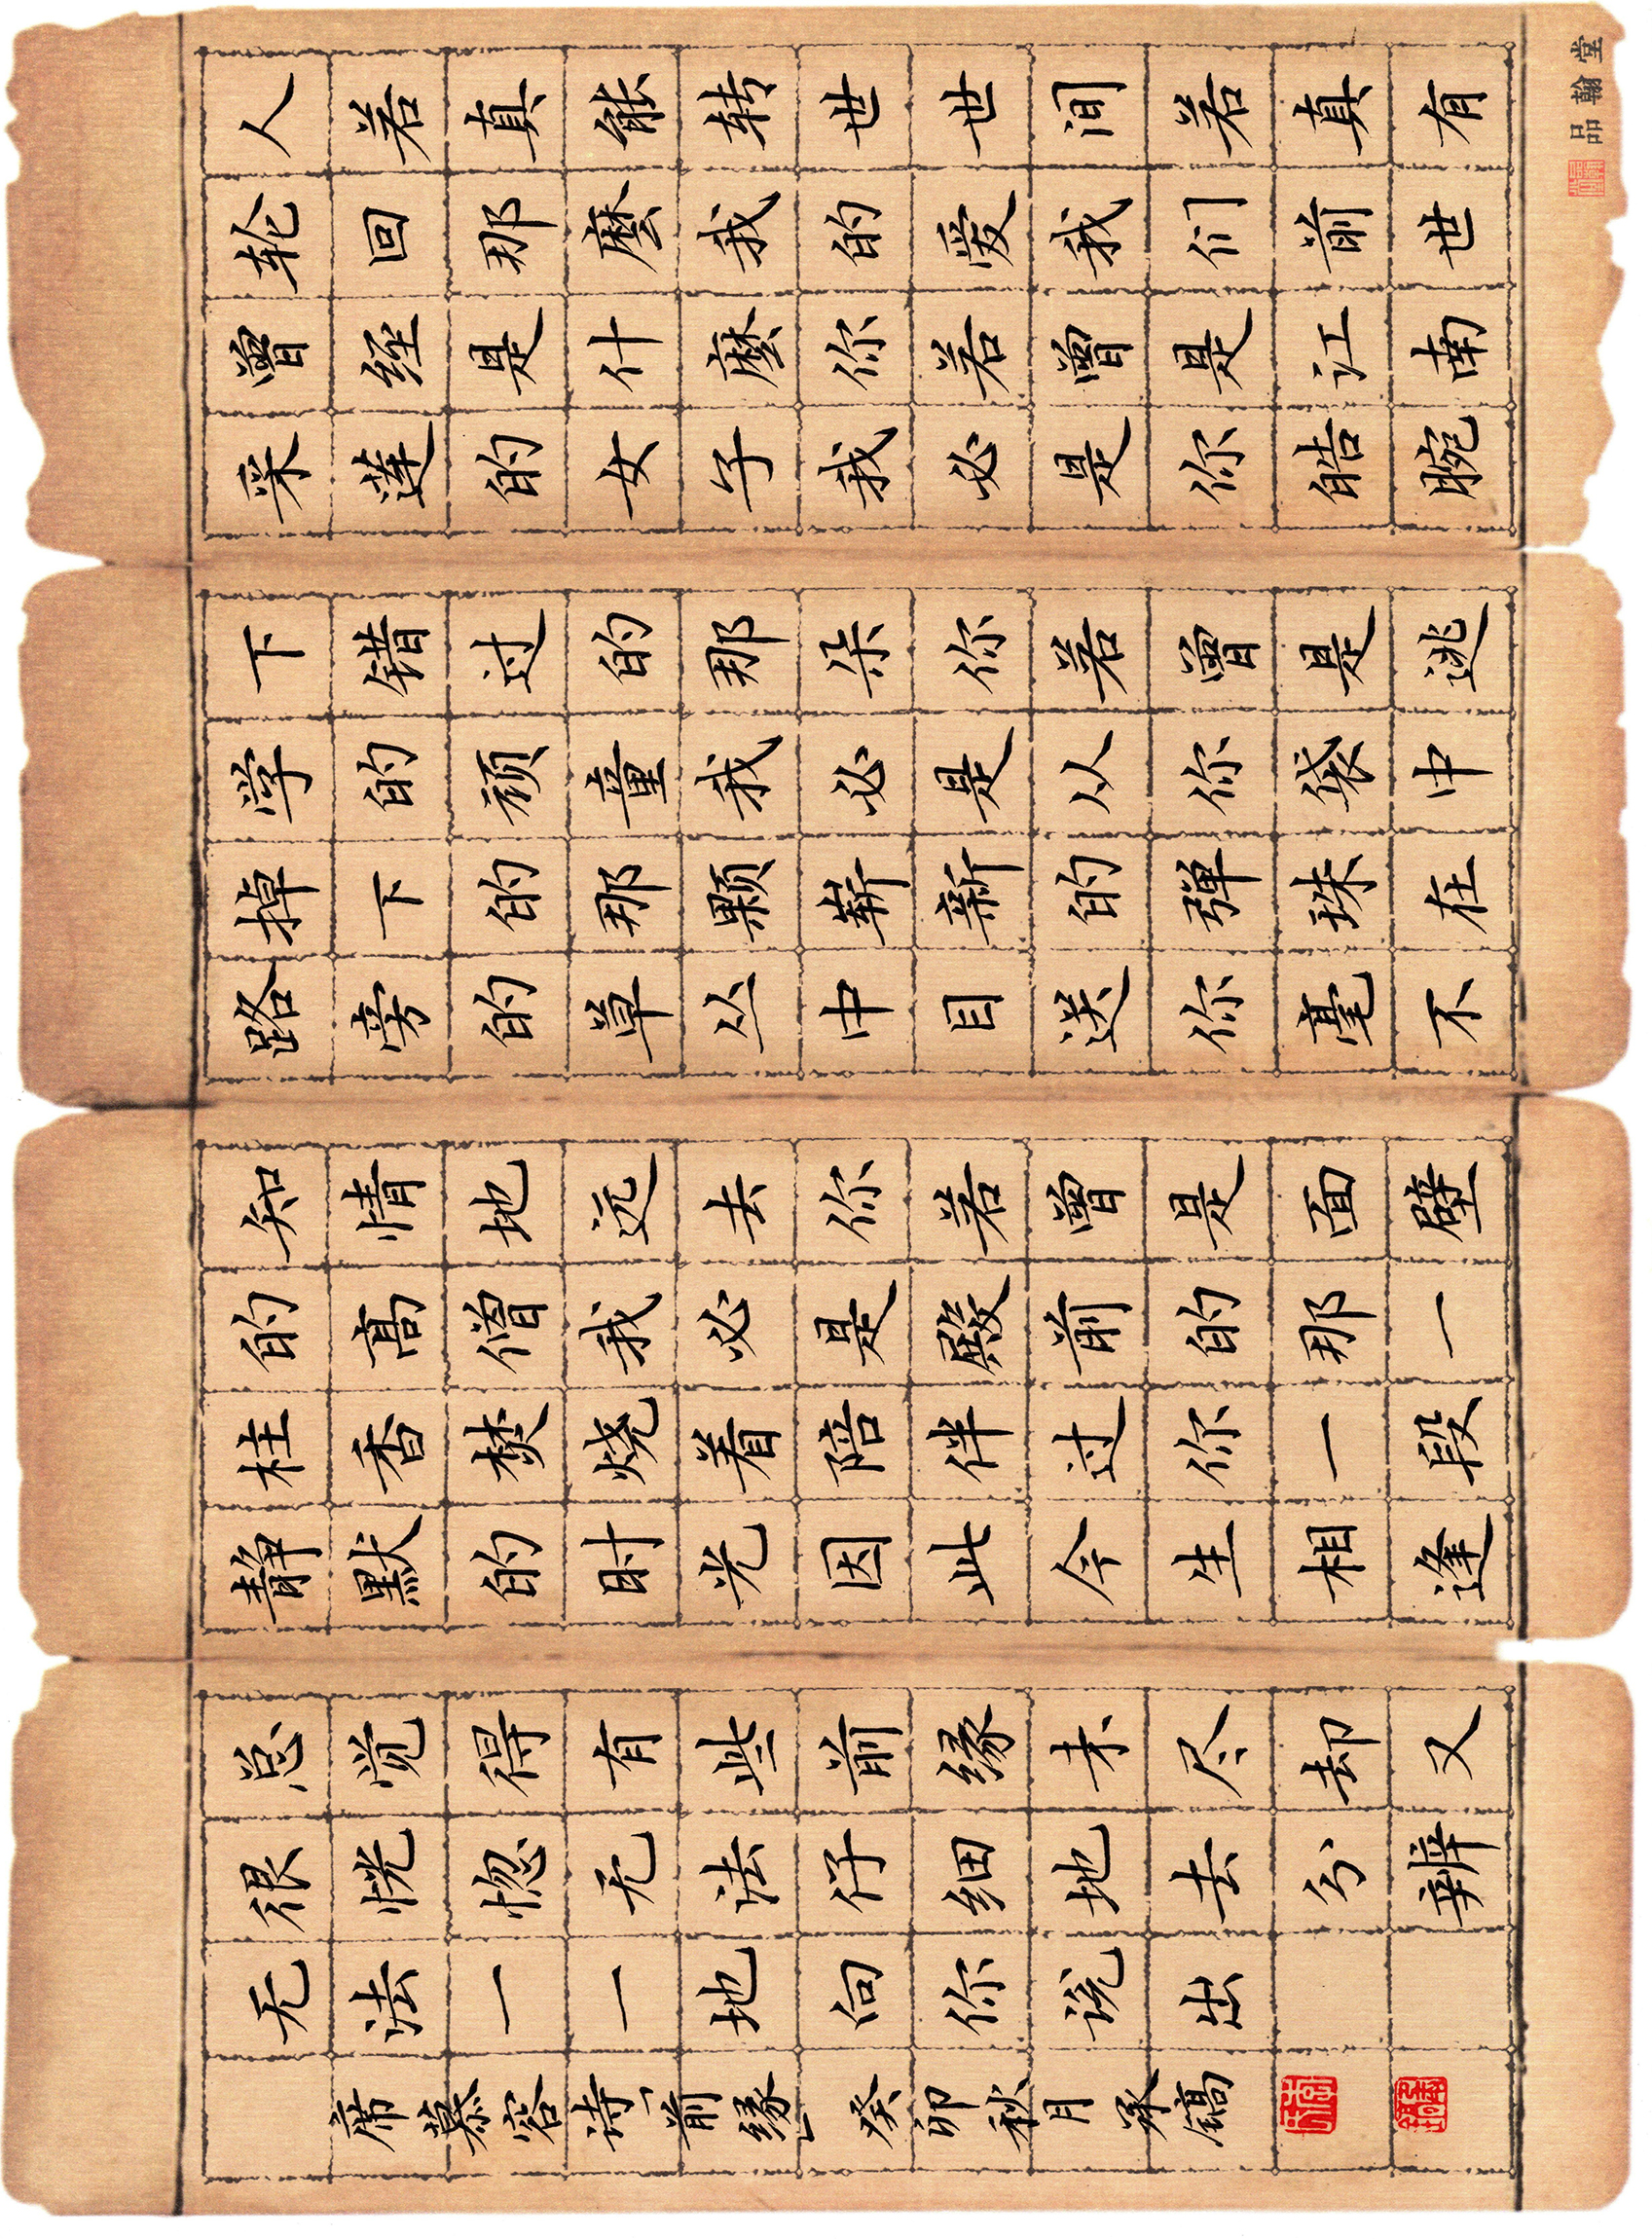 人若真能转世世间若真有
轮回那麼我的爱我们前世
曾经是什麼你若曾是江南
采莲的女子我必是你皓腕
下错过的那朵你若曾是逃
学的顽童我必是从你袋中
掉下的那颗崭新的弹珠在
路旁的草丛中目送你毫不
知情地远去你若曾是面壁
的高僧我必是殿前的那一
柱香焚烧着陪伴过你一段
静默的时光因此今生相逢
总觉得有些前缘未尽却又
很恍惚无法仔细地去分辨
无法一一地向你说出
席慕容诗「前缘」癸卯秋月承镐
品翰堂